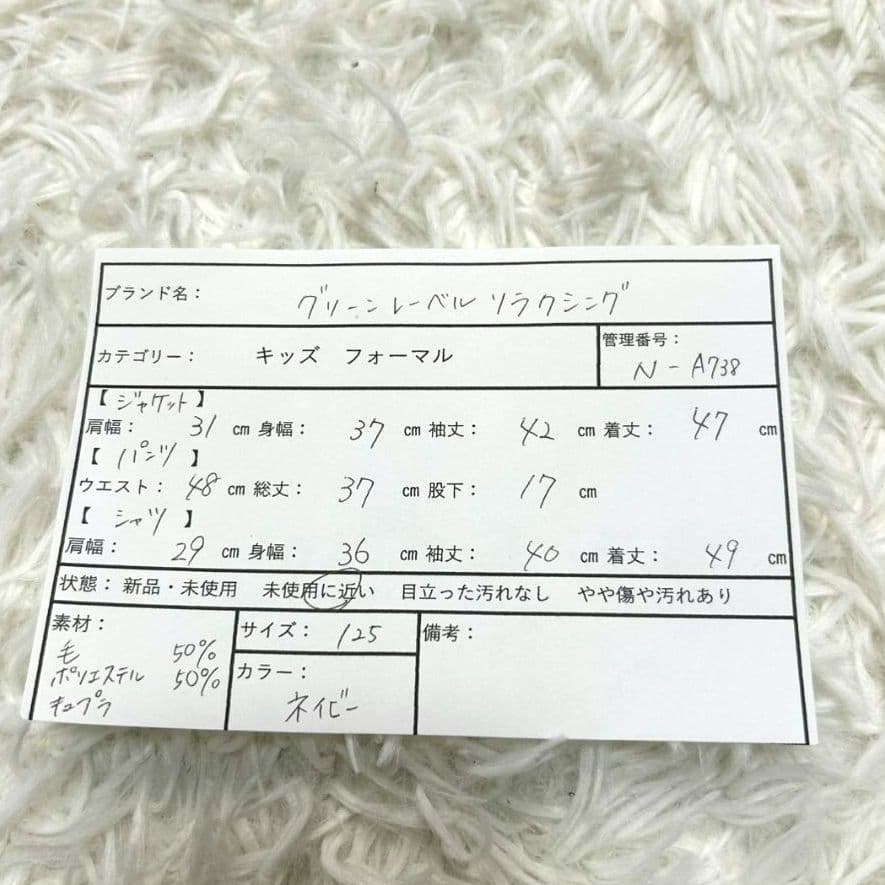 ブランド名： グリーンレーベル リラクシング
カテゴリー： キッズ フォーマル
管理番号： N-A738
【 ジャケット 】
肩幅： 31 cm 身幅： 37 cm 袖丈： 42 cm 着丈： 47 cm
【 パンツ 】
ウエスト： 48 cm 総丈： 37 cm 股下： 17 cm
【 シャツ 】
肩幅： 29 cm 身幅： 36 cm 袖丈： 40 cm 着丈： 49 cm
状態：新品・未使用 未使用に近い 目立った汚れなし やや傷や汚れあり
素材：
毛 50%
ポリエステル 50%
キュプラ
サイズ： 125
カラー：
ネイビー
備考：